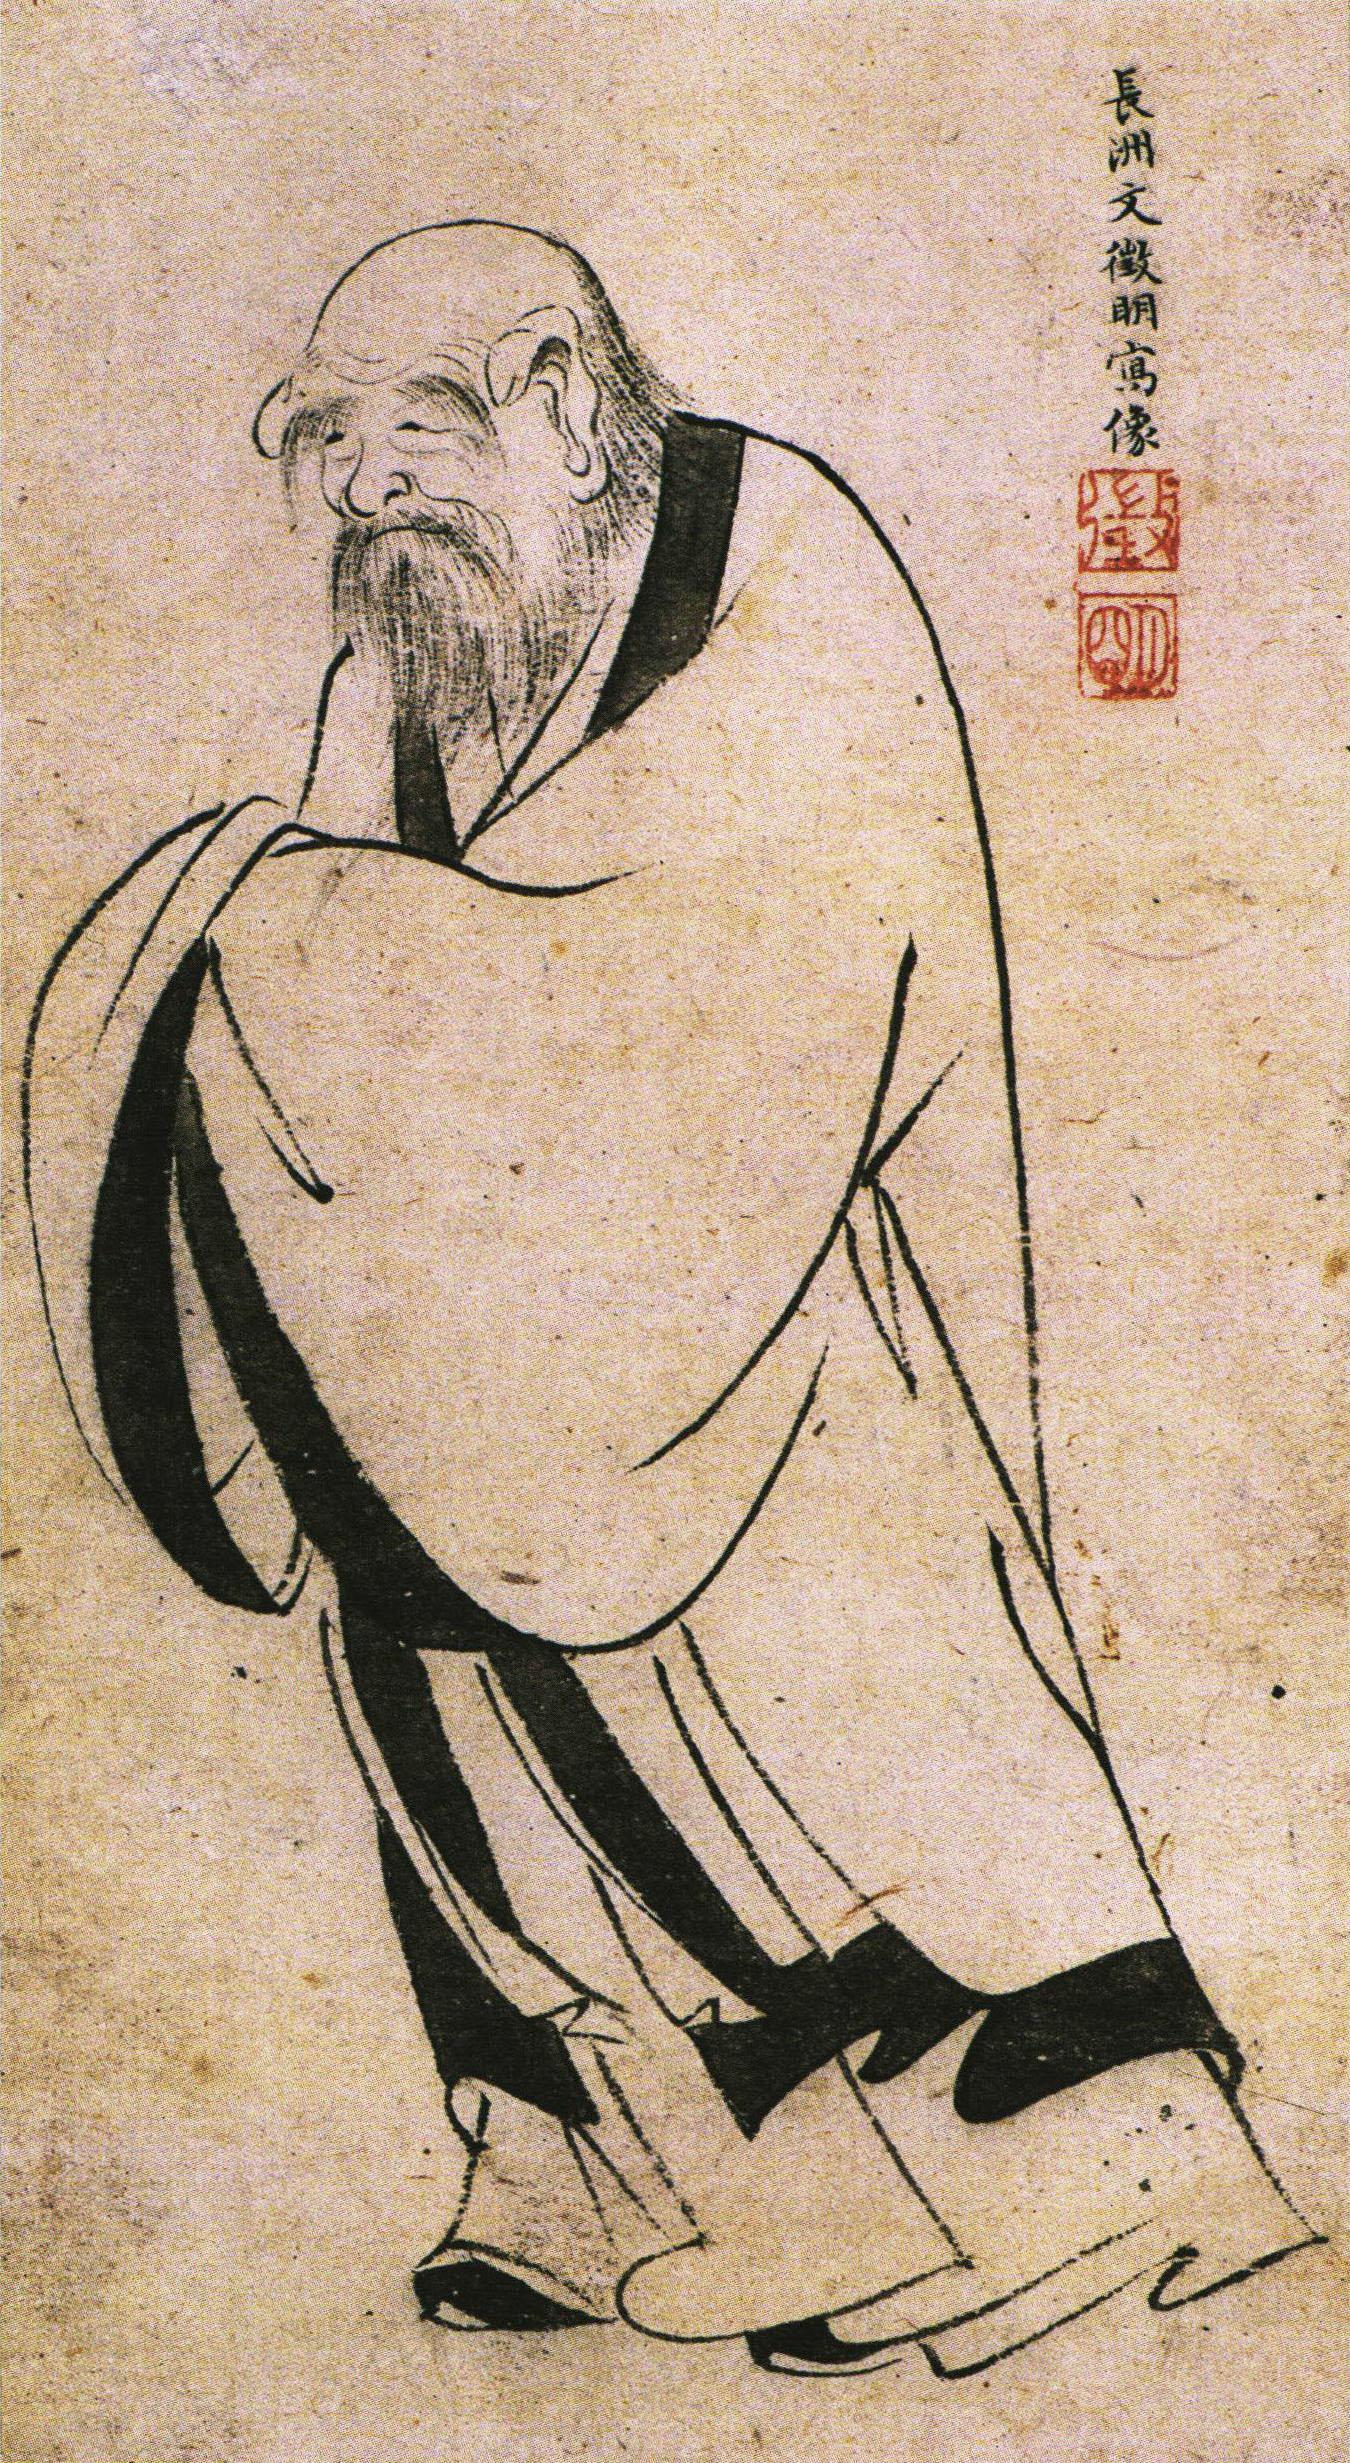 長洲文徵明寫像
徵
明